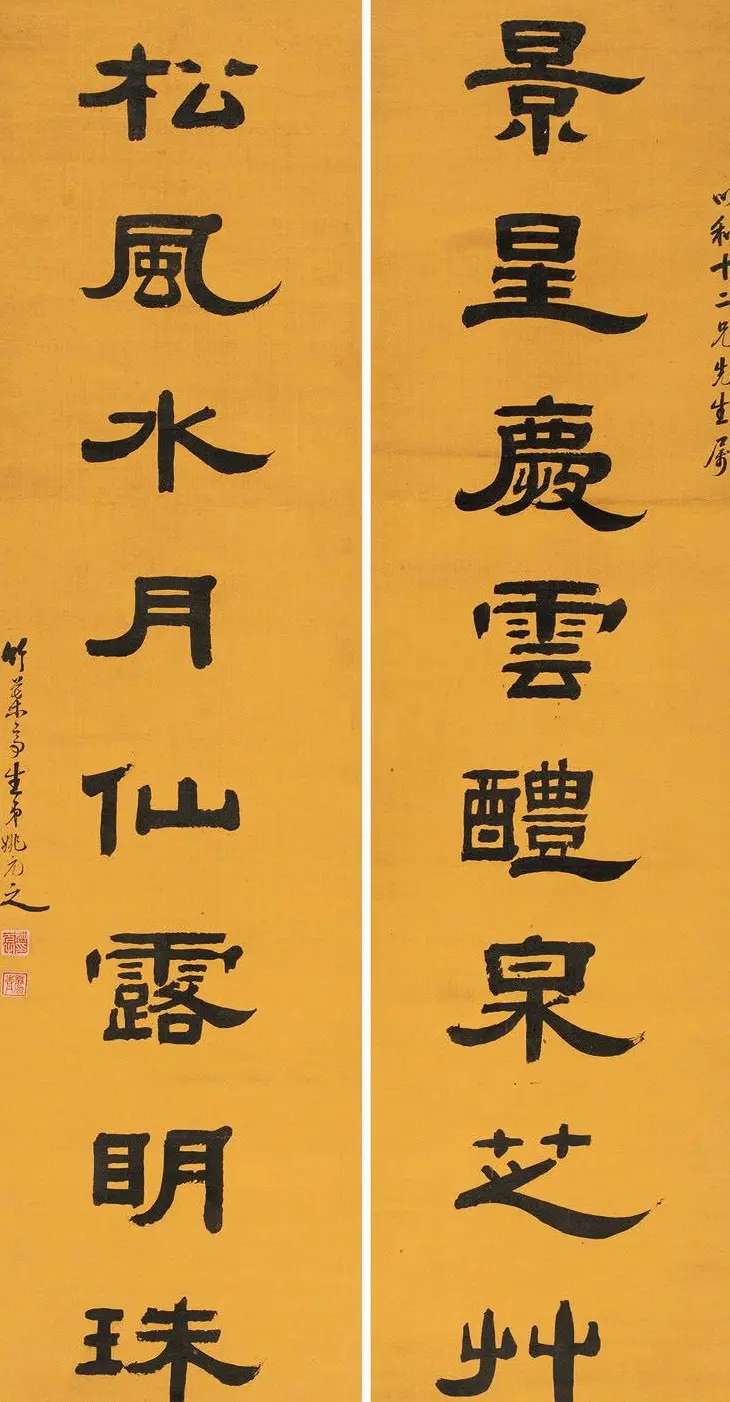 和十二兄先生属
景星慶雲醴泉芝艸
松風水月仙露眀珠
竹葉亭生弟姚元之